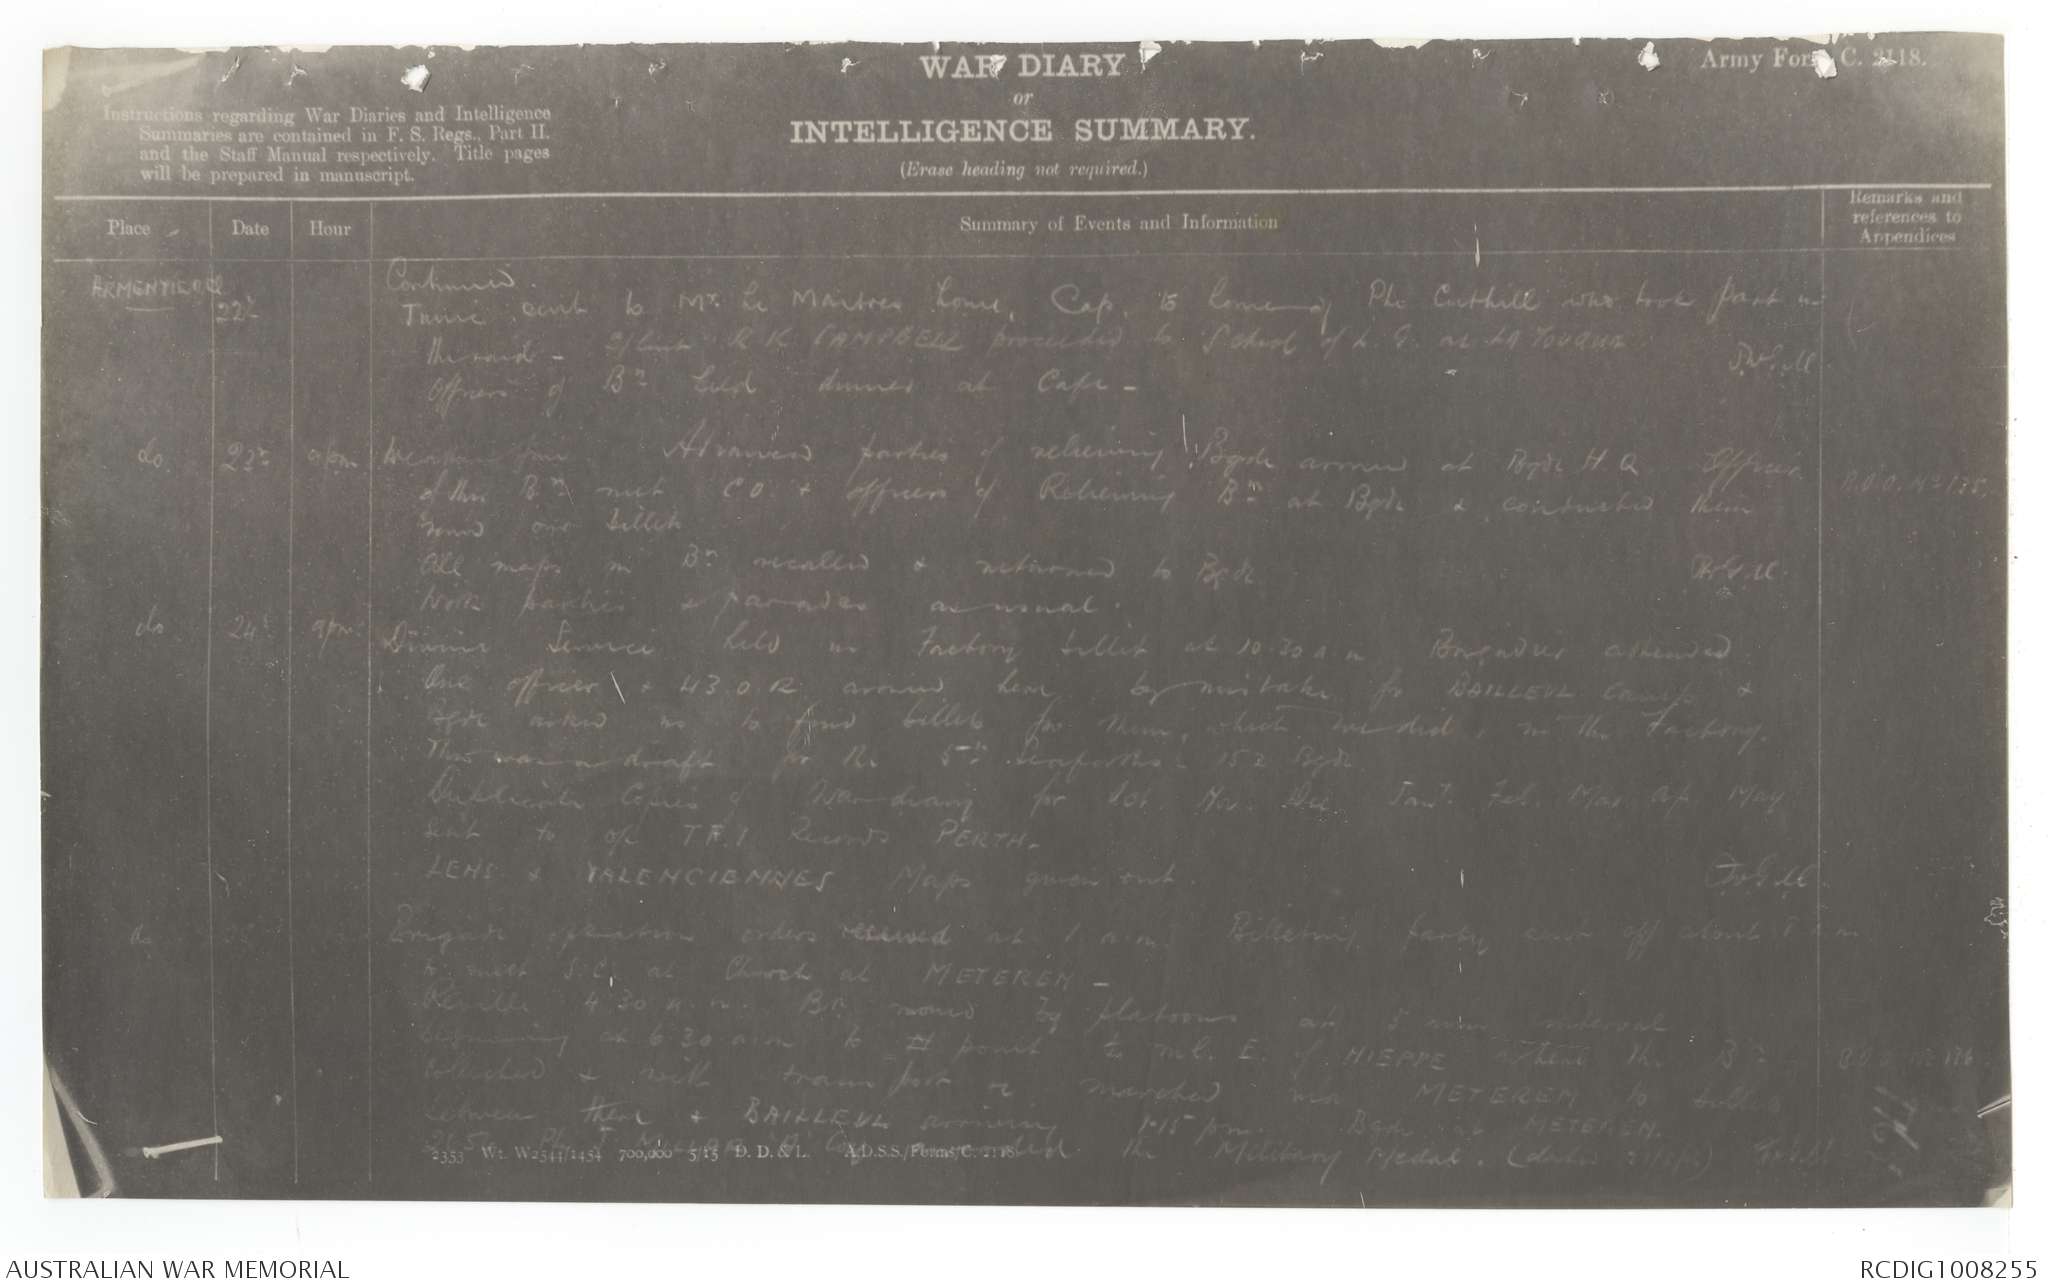 WAR DIARY
or
INTELLIGENCE SUMMARY.
(Erase heading not required.)
Army Form C. 2118.
Instructions regarding War Diaries and Intelligence
Summaries are contained in F. S. Regs., Part II.
and the Staff Manual respectively. Title pages
will be prepared in manuscript.
Place Date Hour Summary of Events and Information Remarks and
references to
Appendices
Continued.
22 sent to Mr Le home, Cap. to home of Pte Cuthill who took part in
the raid - R K CAMPBELL proceeded to School of L. G. at
Officers of Bn held dinner at Cafe -
do. 9 pm Advanced parties of relieving Bgde arrived at Bgde H Q Officers
of this Bn met C O & officers of Relieving Bn at Bgde & conducted them
round our billets
All maps in Bn recalled & returned to Bgde
Work parties & parades as usual.
do 24 9 pm Divine Service held in Factory billet at 10.30 a m Brigadier attended
One officer & 43 O R arrived here by mistake for BAILLEUL &
Bgde asked us to find billets for them, which we did, in the Factory.
This was a draft for the 5th Seaforths - 152 Bgde.
Duplicate Copies of War diary for Oct. Nov. Dec. Jany. Feb. Mar. Ap. May
sent to T.F.1 Records PERTH.
LENS & VALENCIENNES Maps given out.
do Brigade operation orders received at 1 a.m. Billeting party sent off about a m
to meet S.C. at Church at METEREN -
Reveille 4.30 a.m. Bn moved by platoons at 5 min interval
beginning at 6.30 a.m to point E. of NIEPPE where the Bn
collected & with transport marched via METEREN to billets
between there & BAILLEUL arriving 1.15 pm. Bgde at METEREN.
the Military Medal.
2353 Wt. W2544/1454 700,000 5/15 D. D. & L. A.D.S.S./Forms/C. 2118.
AUSTRALIAN WAR MEMORIAL
RCDIG1008255